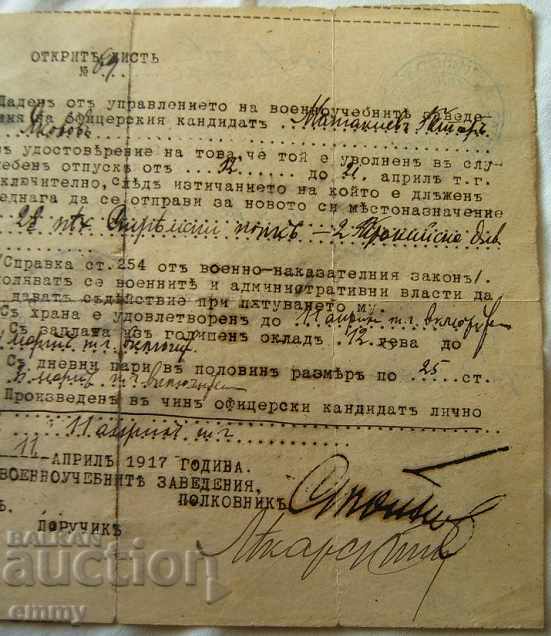 ОТКРИТЪ ЛИСТЬ
№ 69.
Даденъ отъ управлението на военноучебнитѣ заведе
ния на офицерския кандидатъ
въ удостовѣрение на това, че той е уволненъ въ слу
жебенъ отпускъ отъ 12 до 21 априлъ т.г.
ключително, слѣдъ изтичанието на който е длъженъ
еднага да се отправи за новото си мѣстоназначение
28 пѣх. полкъ – 2 Тракийска див.
/Справка ст.254 отъ военно-наказателния законъ/.
моляватъ се военнитѣ и административни власти да
даватъ съдѣйствие при пѫтуването му.
Съ храна е удовлетворенъ до 11 априлъ т.г.
Съ заплата изъ годишенъ окладъ 12 лева до
мартъ т.г.
Съ дневни пари въ половинъ размѣръ по 25 ст.
мартъ т.г.
Произведенъ въ чинъ офицерски кандидатъ лично
11 априлъ т.г.
11 АПРИЛЪ 1917 ГОДИНА.
ВОЕННОУЧЕБНИТѢ ЗАВЕДЕНИЯ,
ПОЛКОВНИКЪ
ПОРУЧИКЪ
БАЛКАН
auction
emmy